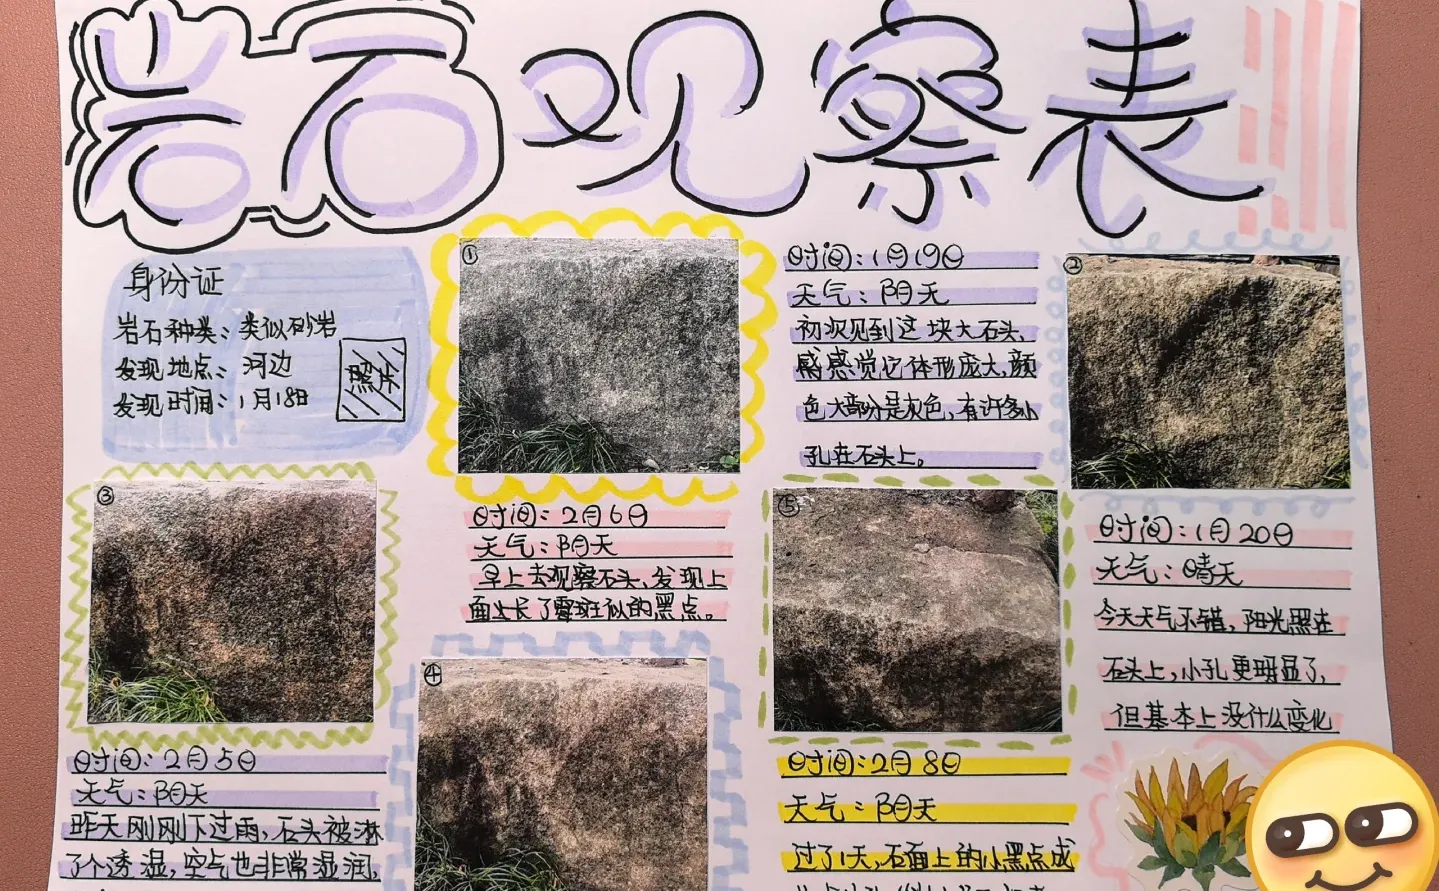 岩石观察表
身份证
岩石种类：类似砂岩
发现地点：河边
发现时间：1月18日
照片
①
时间：1月19日
天气：阴天
初次见到这块大石头，
感感觉它体形庞大，颜
色大部分是灰色，有许多小
孔在石头上。
②
时间：1月20日
天气：晴天
今天天气不错，阳光照在
石头上，小孔更明显了，
但基本上没什么变化
③
时间：2月5日
天气：阴天
昨天刚刚下过雨，石头被淋
了个透湿，空气也非常湿润，
④
时间：2月6日
天气：阴天
早上去观察石头，发现上
面生长了霉斑似的黑点。
⑤
时间：2月8日
天气：阴天
过了1天，石面上的小黑点成